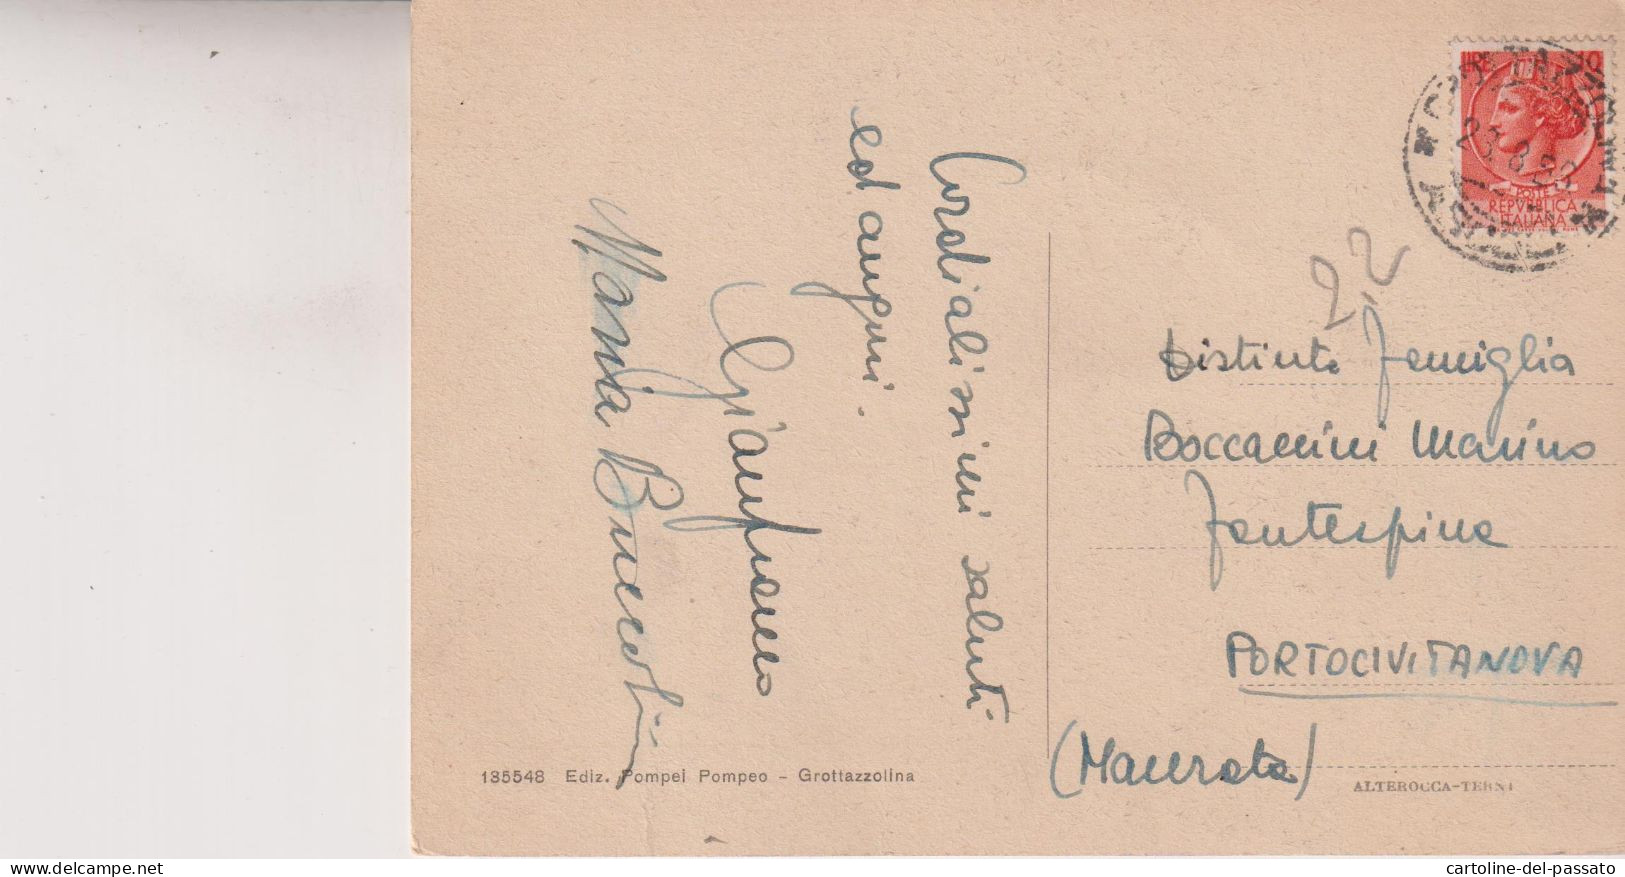 Cordialissimi saluti
ed auguri.
Gianfranco
Maria
LIRE 10
POSTE
REPVBBLICA
ITALIANA
22
Distinta Famiglia
Boccaccini Marino
Fontespina
PORTOCIVITANOVA
(Macerata)
185548 Ediz. Pompei Pompeo - Grottazzolina
ALTEROCCA-TERNI
cartoline-del-passato